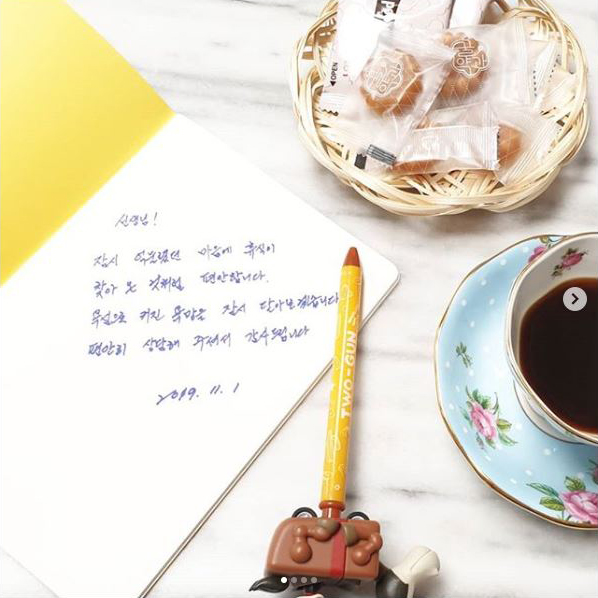 선생님!
잠시 억눌렸던 마음에 휴식이
찾아 온 것처럼 편안합니다.
욕심으로 커진 욕망은 잠시 닫아보겠습니다
편안히 상담해 주셔서 감사드립니다
2019. 11. 1
TWO-GUN
OPEN